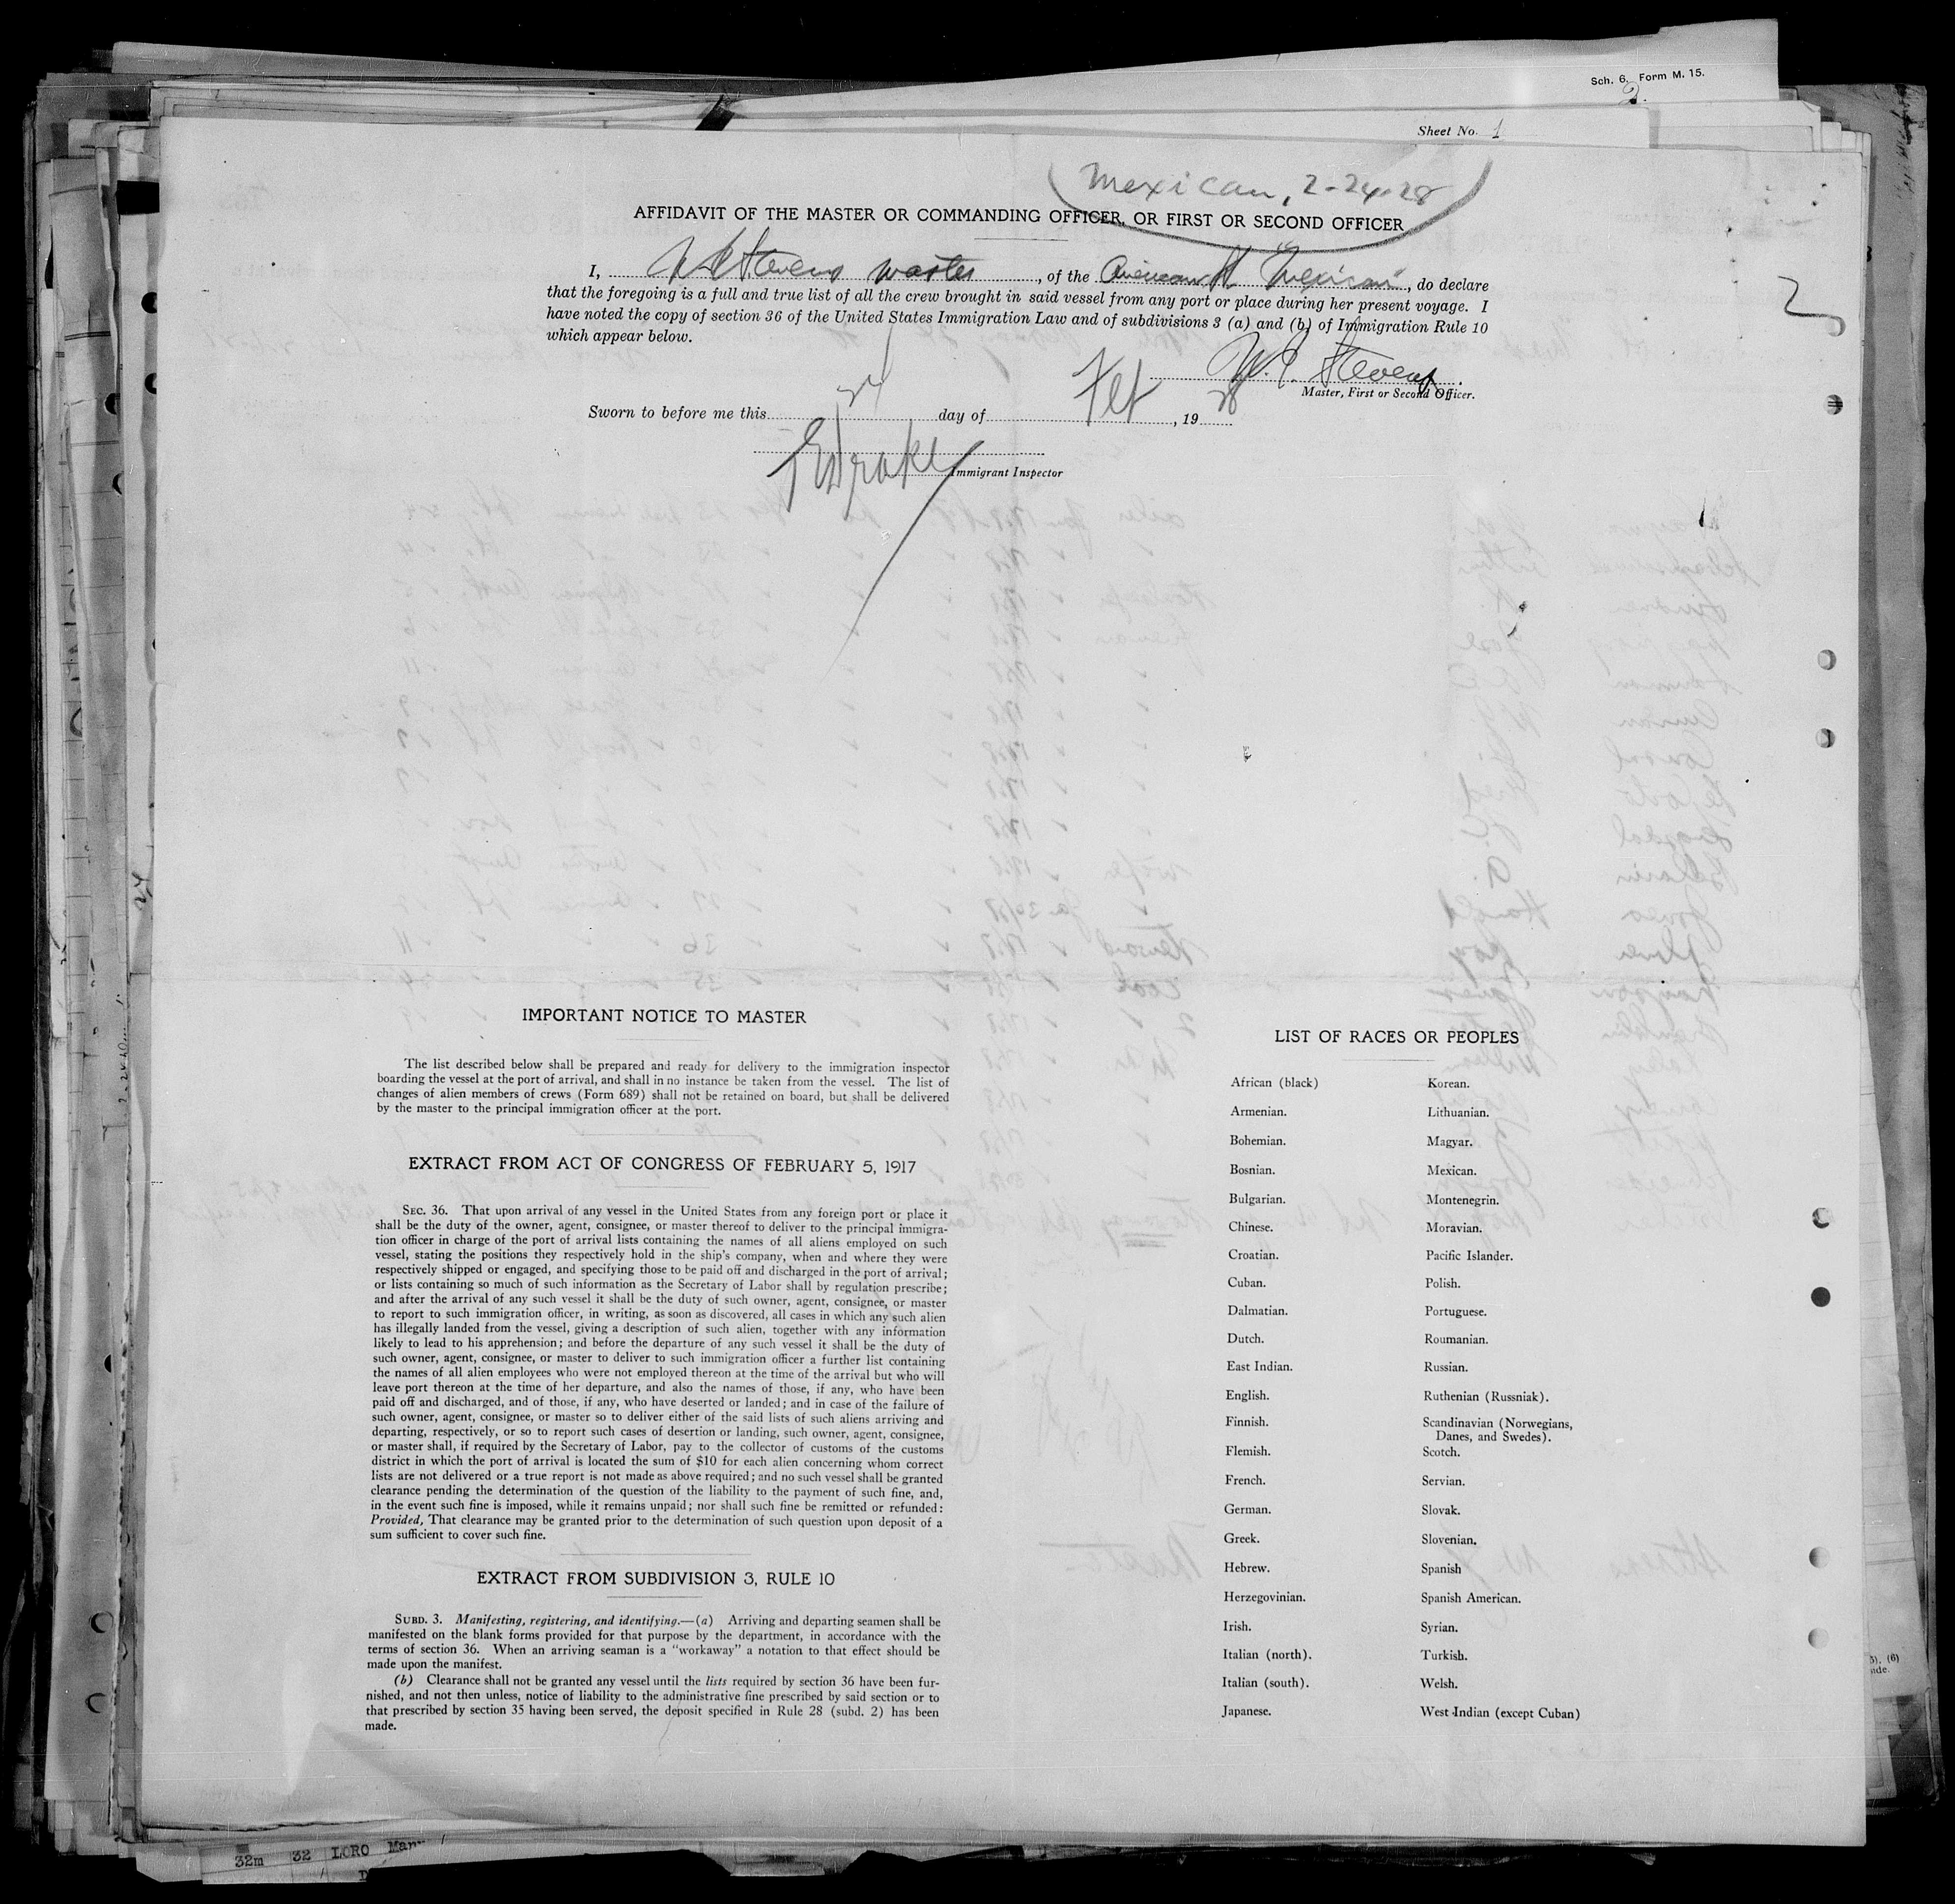 Sch. 6. Form M. 15.
2.
Sheet No. 1
Mexican, 2-24-28
AFFIDAVIT OF THE MASTER OR COMMANDING OFFICER, OR FIRST OR SECOND OFFICER
I, Stevens master, of the American Mexican, do declare
that the foregoing is a full and true list of all the crew brought in said vessel from any port or place during her present voyage. I
have noted the copy of section 36 of the United States Immigration Law and of subdivisions 3 (a) and (b) of Immigration Rule 10
which appear below.
2
Stevens
Master, First or Second Officer.
Sworn to before me this 24 day of Feb, 19 28
Drake
Immigrant Inspector
IMPORTANT NOTICE TO MASTER
The list described below shall be prepared and ready for delivery to the immigration inspector
boarding the vessel at the port of arrival, and shall in no instance be taken from the vessel. The list of
changes of alien members of crews (Form 689) shall not be retained on board, but shall be delivered
by the master to the principal immigration officer at the port.
EXTRACT FROM ACT OF CONGRESS OF FEBRUARY 5, 1917
SEC. 36. That upon arrival of any vessel in the United States from any foreign port or place it
shall be the duty of the owner, agent, consignee, or master thereof to deliver to the principal immigra-
tion officer in charge of the port of arrival lists containing the names of all aliens employed on such
vessel, stating the positions they respectively hold in the ship's company, when and where they were
respectively shipped or engaged, and specifying those to be paid off and discharged in the port of arrival;
or lists containing so much of such information as the Secretary of Labor shall by regulation prescribe;
and after the arrival of any such vessel it shall be the duty of such owner, agent, consignee, or master
to report to such immigration officer, in writing, as soon as discovered, all cases in which any such alien
has illegally landed from the vessel, giving a description of such alien, together with any information
likely to lead to his apprehension; and before the departure of any such vessel it shall be the duty of
such owner, agent, consignee, or master to deliver to such immigration officer a further list containing
the names of all alien employees who were not employed thereon at the time of the arrival but who will
leave port thereon at the time of her departure, and also the names of those, if any, who have been
paid off and discharged, and of those, if any, who have deserted or landed; and in case of the failure of
such owner, agent, consignee, or master so to deliver either of the said lists of such aliens arriving and
departing, respectively, or so to report such cases of desertion or landing, such owner, agent, consignee,
or master shall, if required by the Secretary of Labor, pay to the collector of customs of the customs
district in which the port of arrival is located the sum of $10 for each alien concerning whom correct
lists are not delivered or a true report is not made as above required; and no such vessel shall be granted
clearance pending the determination of the question of the liability to the payment of such fine, and,
in the event such fine is imposed, while it remains unpaid; nor shall such fine be remitted or refunded:
Provided, That clearance may be granted prior to the determination of such question upon deposit of a
sum sufficient to cover such fine.
EXTRACT FROM SUBDIVISION 3, RULE 10
SUBD. 3. Manifesting, registering, and identifying.—(a) Arriving and departing seamen shall be
manifested on the blank forms provided for that purpose by the department, in accordance with the
terms of section 36. When an arriving seaman is a "workaway" a notation to that effect should be
made upon the manifest.
(b) Clearance shall not be granted any vessel until the lists required by section 36 have been fur-
nished, and not then unless, notice of liability to the administrative fine prescribed by said section or to
that prescribed by section 35 having been served, the deposit specified in Rule 28 (subd. 2) has been
made.
LIST OF RACES OR PEOPLES
African (black)
Armenian.
Bohemian.
Bosnian.
Bulgarian.
Chinese.
Croatian.
Cuban.
Dalmatian.
Dutch.
East Indian.
English.
Finnish.
Flemish.
French.
German.
Greek.
Hebrew.
Herzegovinian.
Irish.
Italian (north).
Italian (south).
Japanese.
Korean.
Lithuanian.
Magyar.
Mexican.
Montenegrin.
Moravian.
Pacific Islander.
Polish.
Portuguese.
Roumanian.
Russian.
Ruthenian (Russniak).
Scandinavian (Norwegians,
Danes, and Swedes).
Scotch.
Servian.
Slovak.
Slovenian.
Spanish
Spanish American.
Syrian.
Turkish.
Welsh.
West Indian (except Cuban)
32m 32 LORO